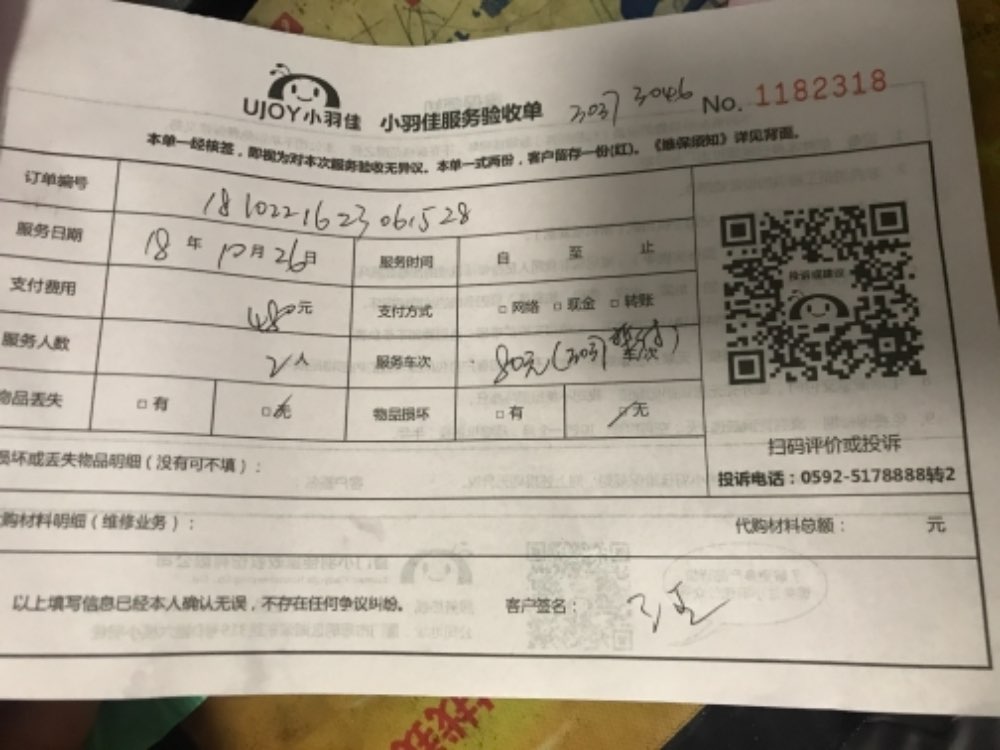 UJOY小羽佳 小羽佳服务验收单 3037 3046 No. 1182318
本单一经核签，即视为对本次服务验收无异议。本单一式两份，客户留存一份(红)。《维保须知》详见背面。
订单编号 18102216230061528
服务日期 18年10月26日 服务时间 自 至 止
支付费用 480元 支付方式 □网络 □现金 □转账
服务人数 2人 服务车次 80元(3037 车/次
物品丢失 □有 □无 物品损坏 □有 □无
投诉或建议
扫码评价或投诉
投诉电话：0592-5178888转2
损坏或丢失物品明细（没有可不填）：
购材料明细（维修业务）： 代购材料总额： 元
以上填写信息已经本人确认无误，不存在任何争议纠纷。 客户签名：